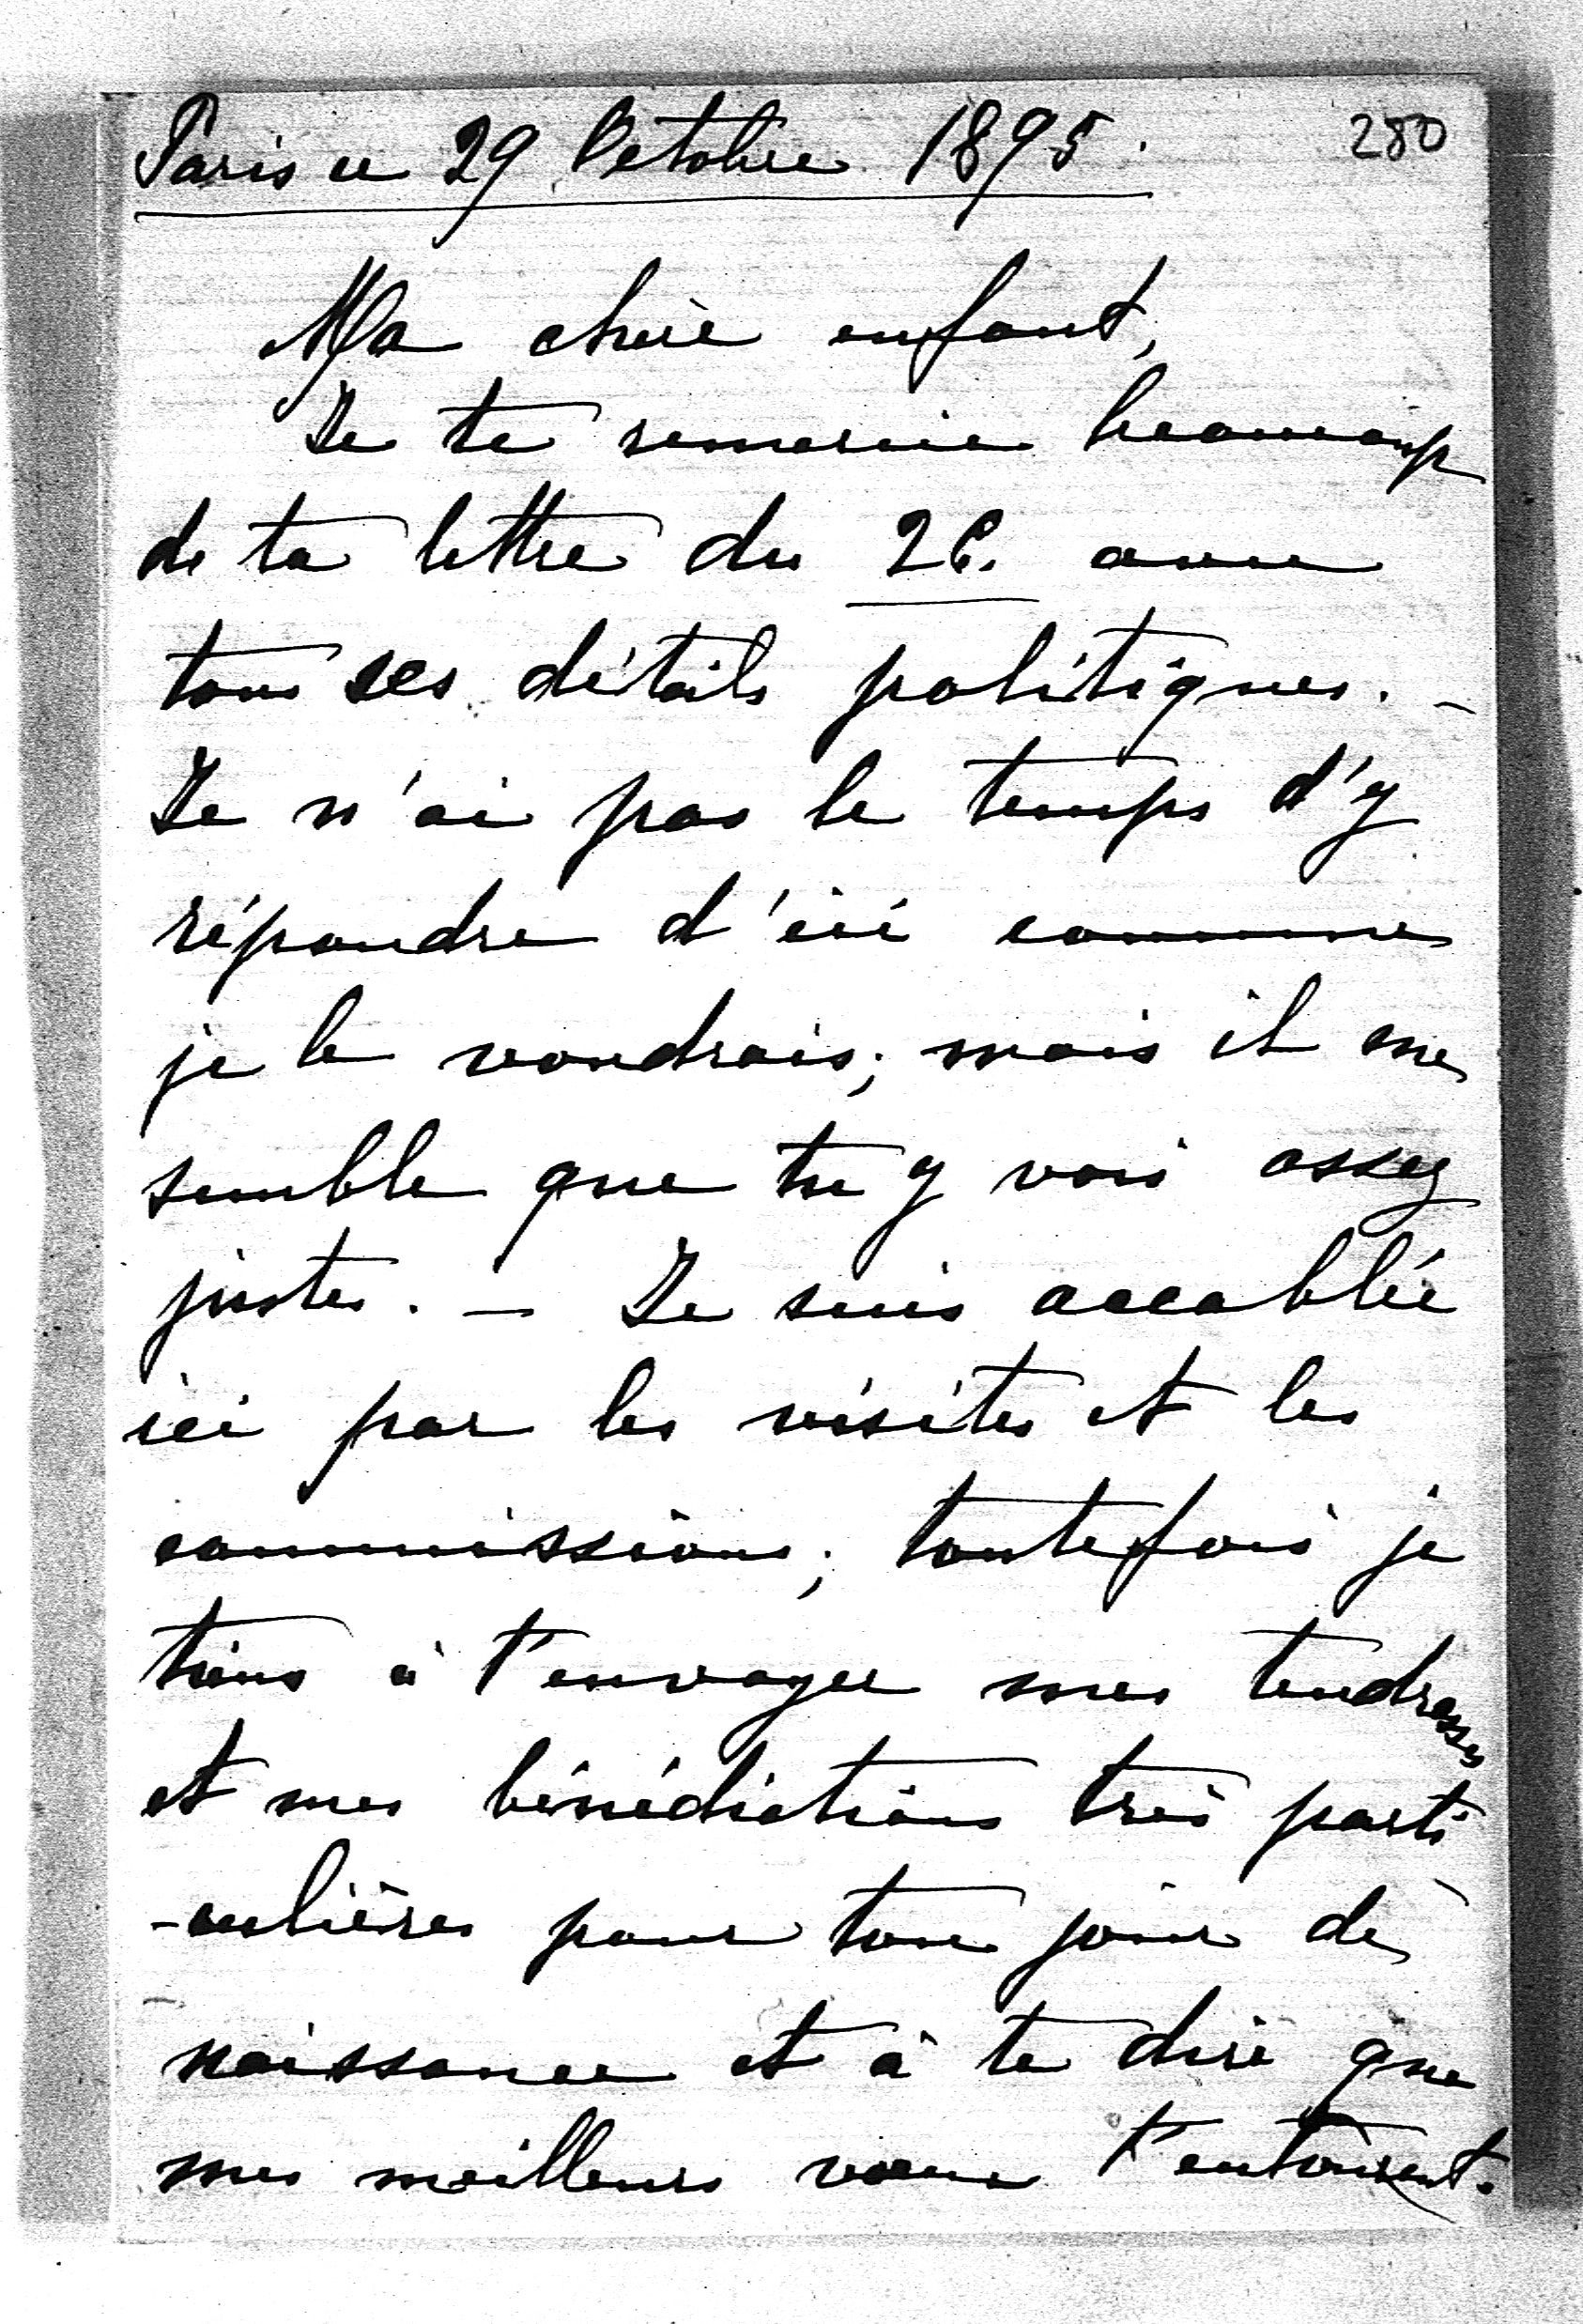 Paris ce 29 Octobre 1895. 280
Ma chère enfant,
Je te remercie beaucoup
de ta lettre du 26. avec
tous ses détails politiques. —
Je n'ai pas le temps d'y
répondre d'ici comme
je le voudrais; mais il me
semble que tu y vois assez
juste. — Je suis accablée
ici par les visites et les
commissions; toutefois je
tiens à t'envoyer mes tendresses
et mes bénédictions très parti
-culières pour ton jour de
naissance et à te dire que
mes meilleurs vœux t'entourent.